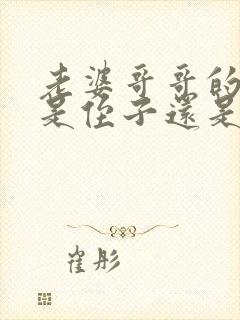 老婆哥哥的
是侄子還是
崔彤